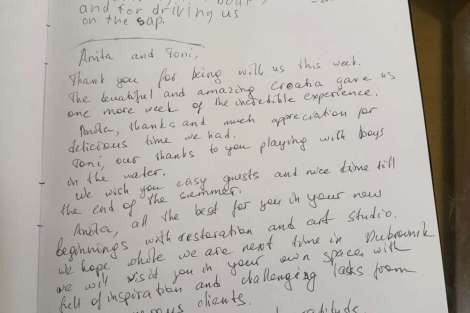 and for driving us
on the sap.
Anita and Toni,
Thank you for being with us this week.
The beautiful and amazing Croatia gave us
one more week of the incredible experience.
Anita, thanks and much appreciation for
delicious time we had.
Toni, our thanks to you playing with boys
in the water.
We wish you easy guests and nice time till
the end of the summer.
Anita, all the best for you in your new
beginnings with restoration and art studio.
We hope while we are next time in Dubrovnik
we will visit you in your own space with
full of inspiration and challenging tasks from
clients.